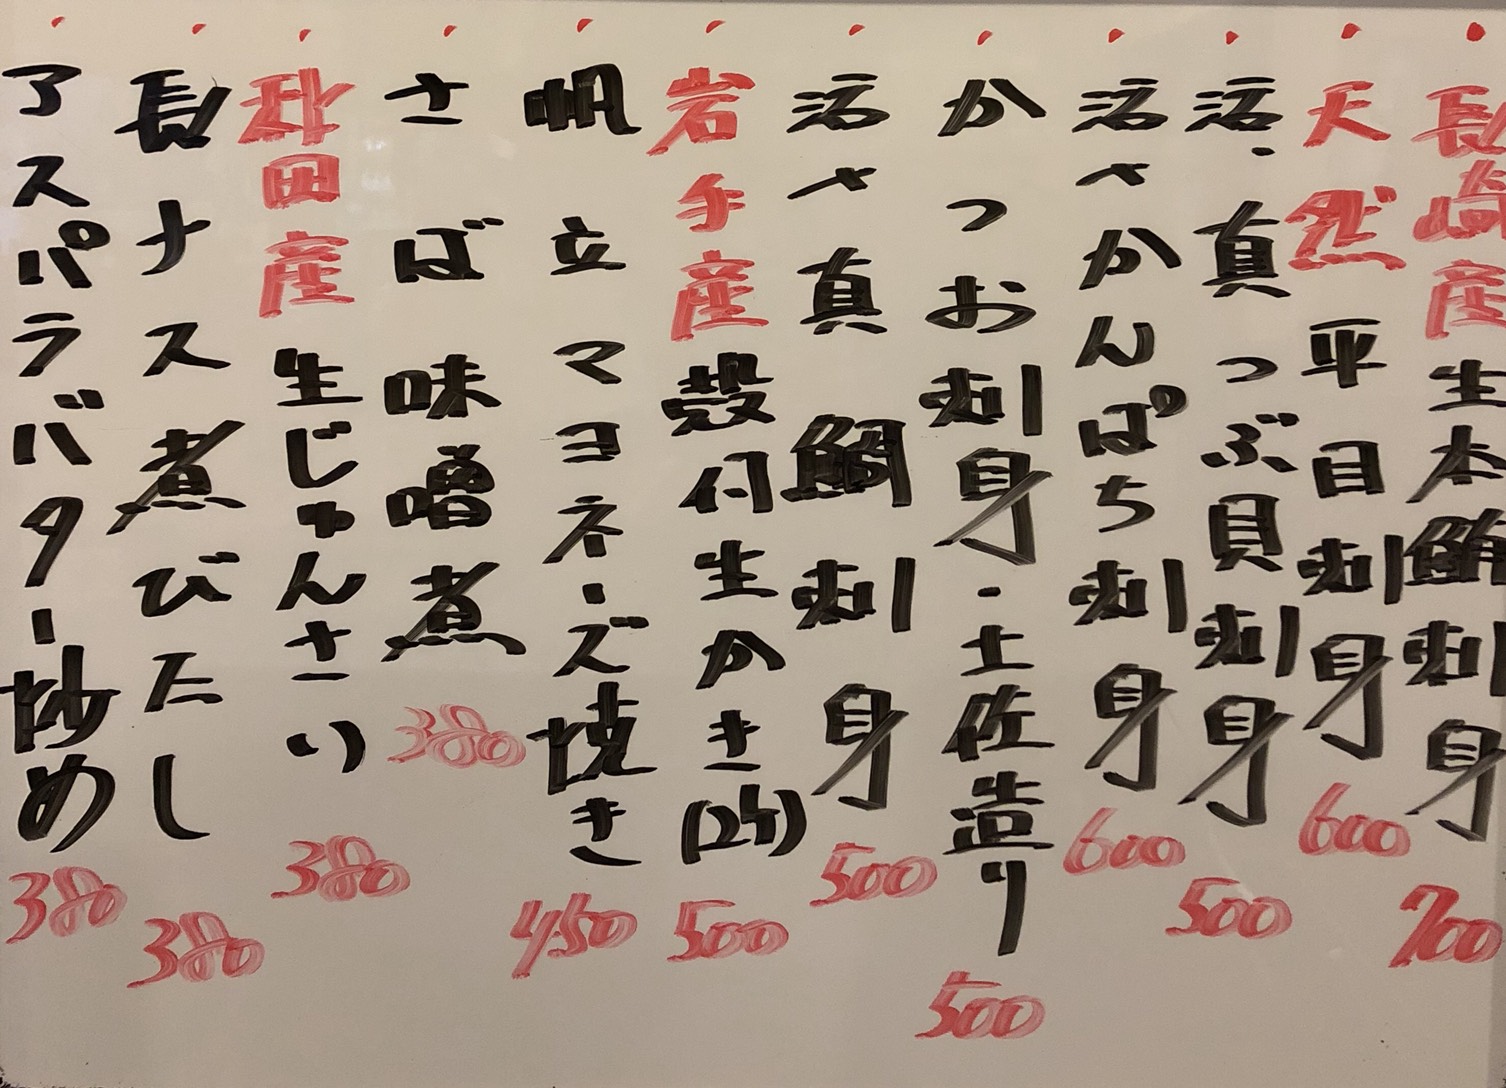 長崎産生本鮪刺身 700
天然平目刺身 600
活・真つぶ貝刺身 500
活〆かんぱち刺身 600
かつお刺身・土佐造り 500
活〆真鯛刺身 500
岩手産殻付生かき(2ケ) 500
帆立マヨネーズ焼き 450
さば味噌煮 380
秋田産生じゅんさい 380
長ナス煮びたし 380
アスパラバター炒め 380